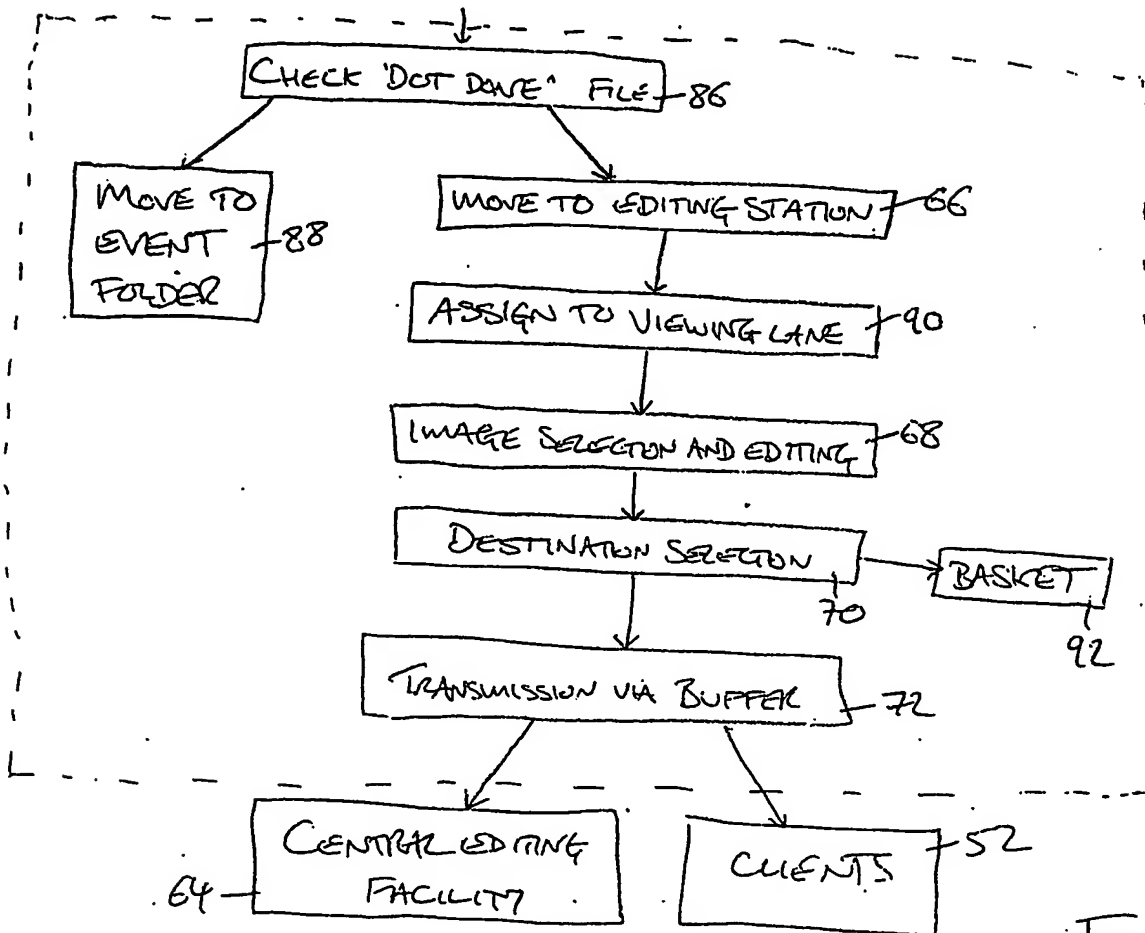 CHECK 'DOT DONE" FILE 86
MOVE TO
EVENT
FOLDER
88
MOVE TO EDITING STATION 66
ASSIGN TO VIEWING LANE 90
IMAGE SELECTON AND EDITING 68
DESTINATION SELECTON
70
BASKET
92
TRANSMISSION VIA BUFFER 72
CENTRAL EDITING
FACILITY
64
CLIENTS
52